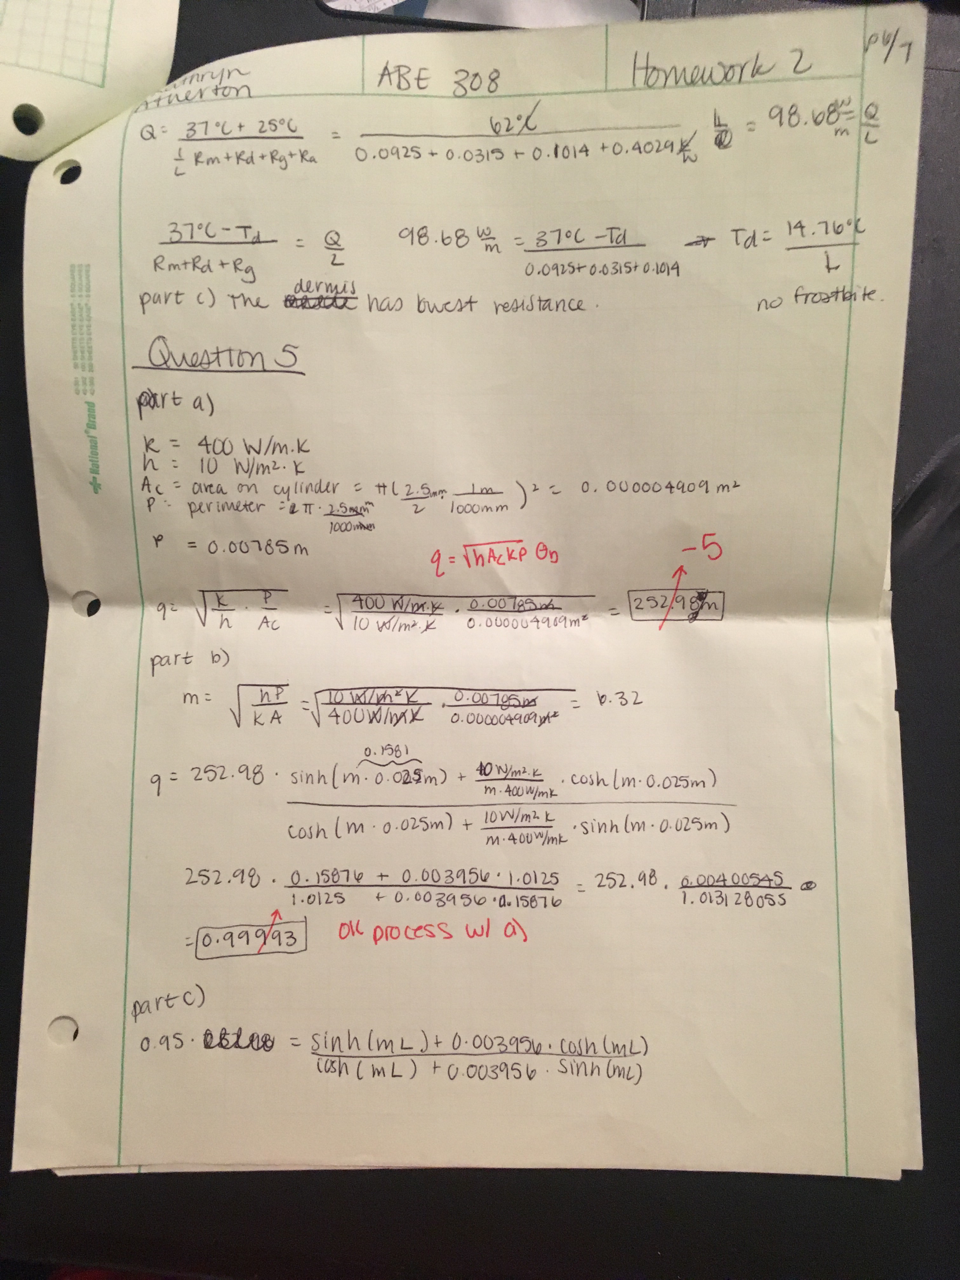 ABE 308
Homework 2
P6/7
Q = (37°C + 25°C)/(1/L Rm+Rd+Rg+Ra) = 62°C/(0.0925 + 0.0315 + 0.1014 + 0.4029 K/W) L = 98.68 W/m = Q/L
(37°C - Td)/(Rm+Rd+Rg) = Q/L 98.68 W/m = (37°C - Td)/(0.0925+0.0315+0.1014) → Td = 14.76°C/L
part c) The dermis has lowest resistance. no frostbite.
Question 5
part a)
k = 400 W/m.K
h = 10 W/m2.K
Ac = area on cylinder = π(2.5mm/2 · 1m/1000mm)² = 0.000004909 m²
P = perimeter = 2π · 2.5mm/1000mm
P = 0.00785m
q = √(hAckP) θb
-5
q = √(k/h · P/Ac) = √(400 W/m.K/10 W/m².K · 0.00785m/0.000004909m²) = 252.98
part b)
m = √(hP/kA) = √(10 W/m²K/400W/mK · 0.00785m/0.000004909m²) = 6.32
0.1581
q = 252.98 · (sinh(m · 0.025m) + 10W/m².K/m·400W/mK · cosh(m·0.025m))/(cosh(m·0.025m) + 10W/m²K/m·400W/mK · sinh(m·0.025m))
252.98 · (0.15876 + 0.003956 · 1.0125)/(1.0125 + 0.003956 · 0.15876) = 252.98 · 0.00400545/1.013128055
= 0.99993 OK process w/ a)
part c)
0.95 · = (sinh(mL) + 0.003956 · cosh(mL))/(cosh(mL) + 0.003956 · sinh(mL))
National Brand